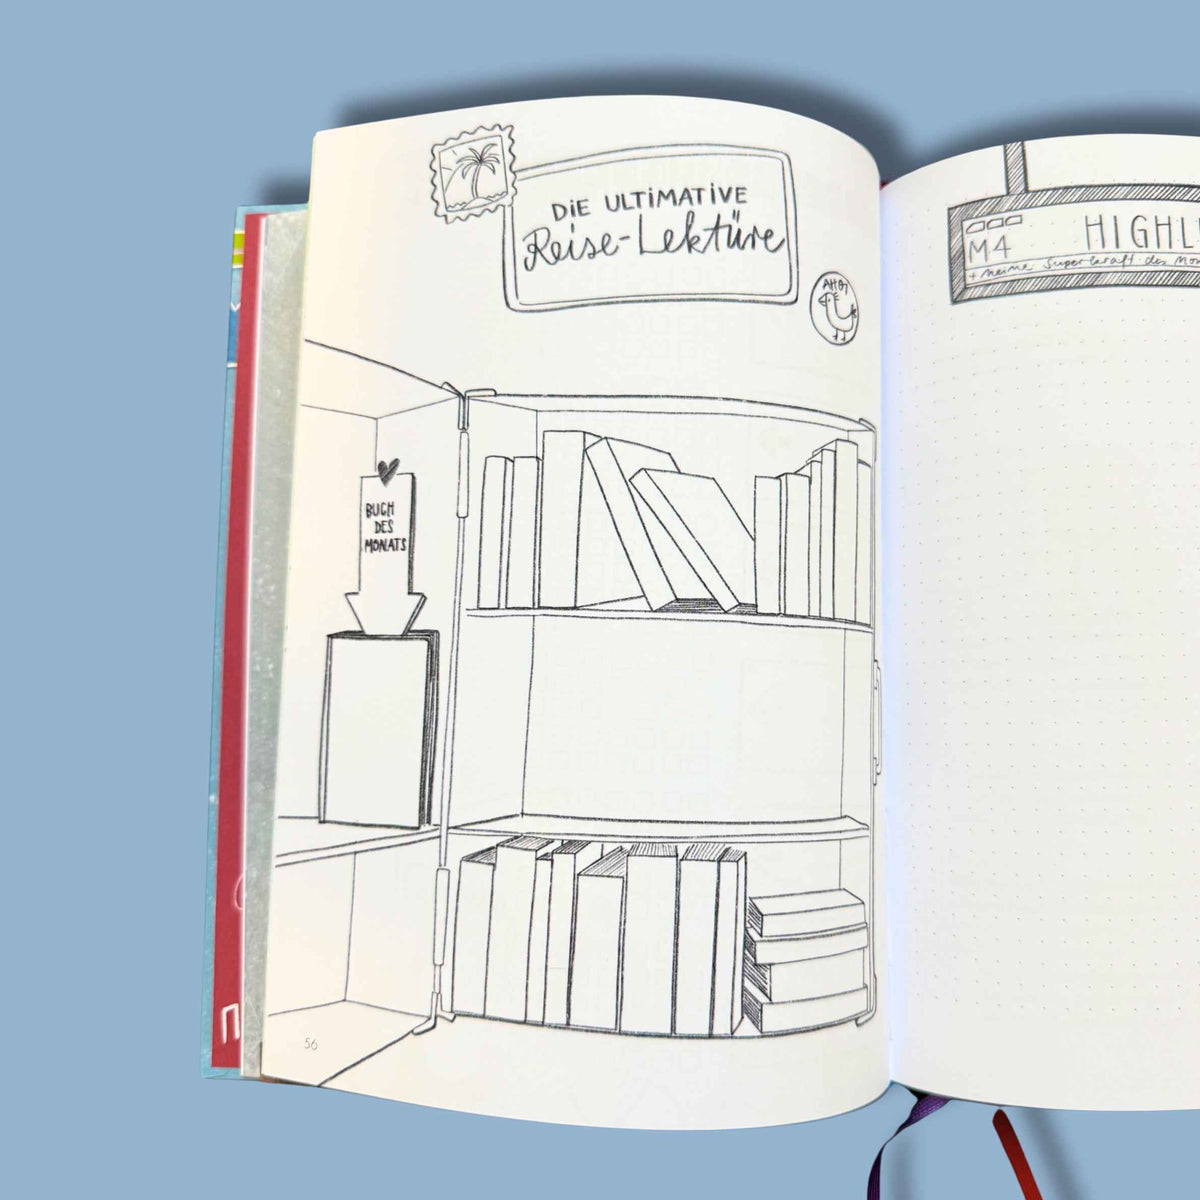 DiE ULTiMATiVE
Reise-Lektüre
AHOI
BUCH
DES
MONATS
56
M4
HIGHL
+ meine Superkraft des Mon